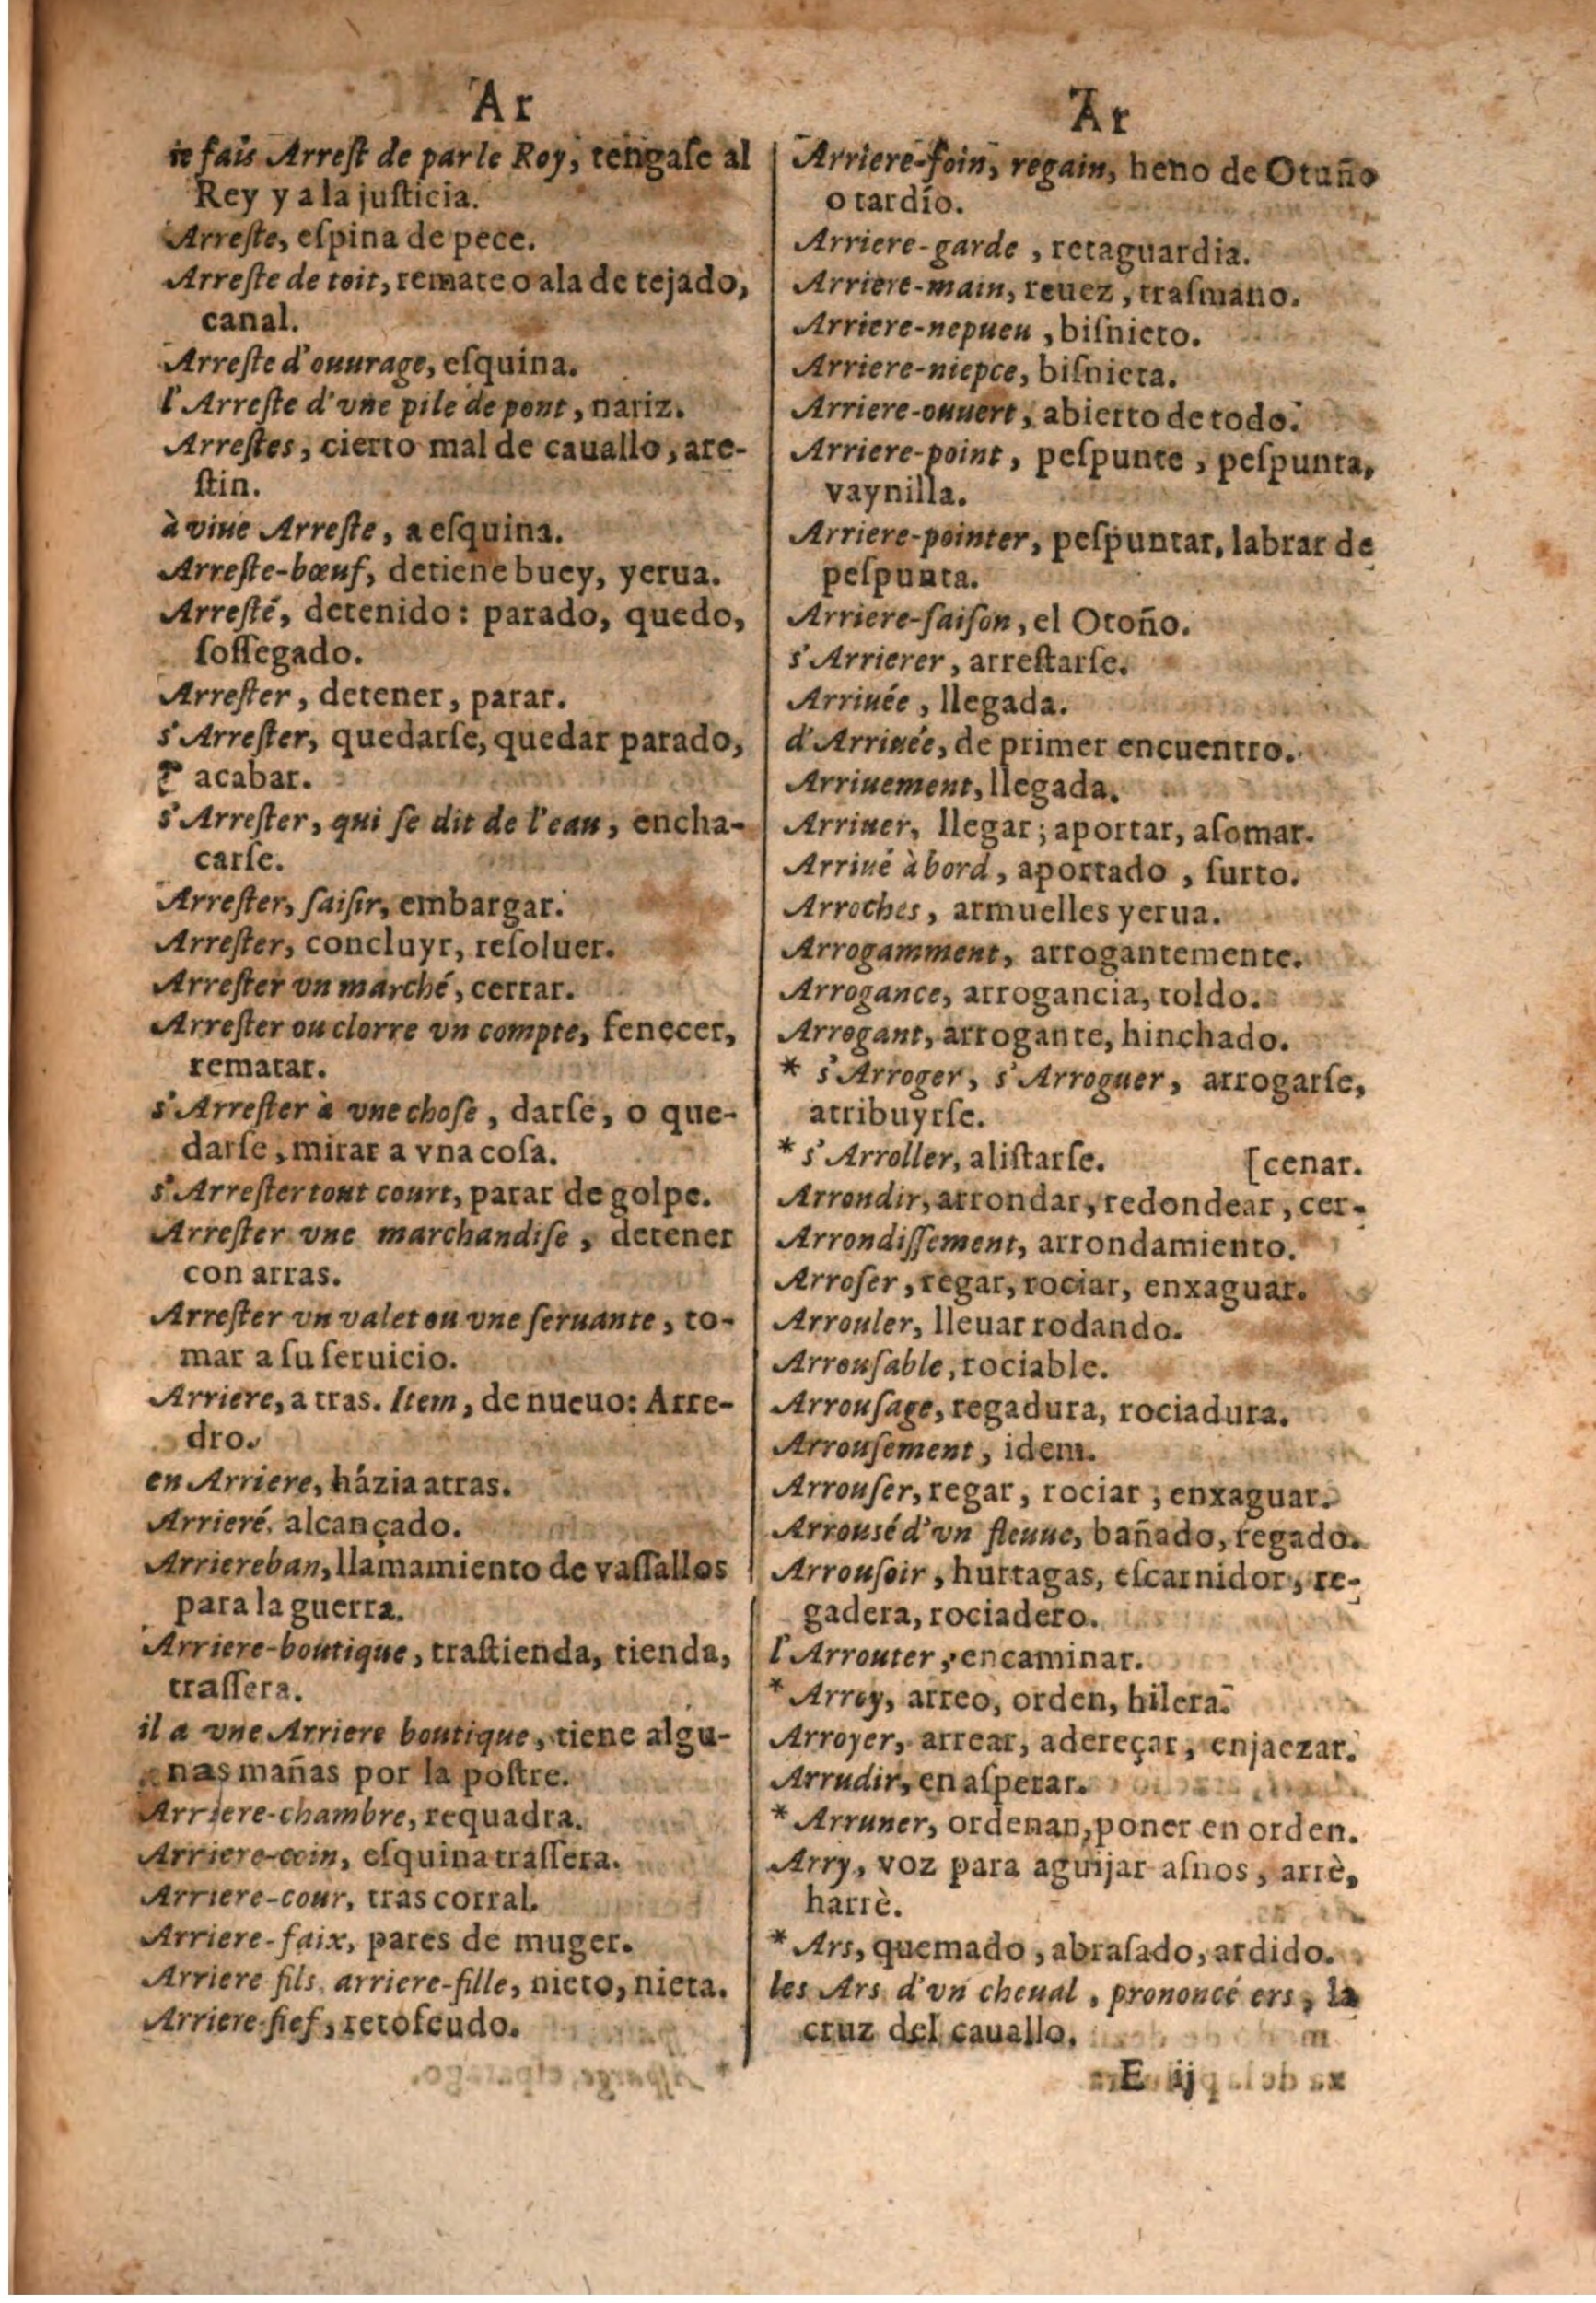 Ar
ie fais Arrest de par le Roy, tengase al
Rey y a la justicia.
Arreste, espina de pece.
Arreste de toit, remate o ala de tejado,
canal.
Arreste d'ouurage, esquina.
l'Arreste d'vne pile de pont, nariz.
Arrestes, cierto mal de cauallo, are-
stin.
à viue Arreste, a esquina.
Arreste-bœuf, detiene buey, yerua.
Arresté, detenido: parado, quedo,
sossegado.
Arrester, detener, parar.
s'Arrester, quedarse, quedar parado,
& acabar.
s'Arrester, qui se dit de l'eau, encha-
carse.
Arrester, saisir, embargar.
Arrester, concluyr, resoluer.
Arrester vn marché, cerrar.
Arrester ou clorre vn compte, feneçer,
rematar.
s'Arrester à vne chose, darse, o que-
darse, mirar a vna cosa.
s'Arrester tout court, parar de golpe.
Arrester vne marchandise, detener
con arras.
Arrester vn valet ou vne seruante, to-
mar a su seruicio.
Arriere, a tras. Item, de nueuo: Arre-
dro.
en Arriere, házia atras.
Arrieré, alcançado.
Arriereban, llamamiento de vassallos
para la guerra.
Arriere-boutique, trastienda, tienda,
trassera.
il a vne Arriere boutique, tiene algu-
nas mañas por la postre.
Arriere-chambre, requadra.
Arriere-coin, esquina trassera.
Arriere-cour, tras corral.
Arriere-faix, pares de muger.
Arriere fils, arriere-fille, nieto, nieta.
Arriere-fief, retofeudo.
Ar
Arriere-foin, regain, heno de Otuño
o tardío.
Arriere-garde, retaguardia.
Arriere-main, reuez, trasmano.
Arriere-nepueu, bisnieto.
Arriere-niepce, bisnieta.
Arriere-ouuert, abierto de todo.
Arriere-point, pespunte, pespunta,
vaynilla.
Arriere-pointer, pespuntar, labrar de
pespunta.
Arriere-saison, el Otoño.
s'Arrierer, arrestarse.
Arriuée, llegada.
d'Arriuée, de primer encuentro.
Arriuement, llegada.
Arriuer, llegar; aportar, asomar.
Arriué à bord, aportado, surto.
Arroches, armuelles yerua.
Arrogamment, arrogantemente.
Arrogance, arrogancia, toldo.
Arrogant, arrogante, hinchado.
* s'Arroger, s'Arroguer, arrogarse,
atribuyrse.
* s'Arroller, alistarse. [cenar.
Arrondir, arrondar, redondear, cer-
Arrondissement, arrondamiento.
Arroser, regar, rociar, enxaguar.
Arrouler, lleuar rodando.
Arrousable, rociable.
Arrousage, regadura, rociadura.
Arrousement, idem.
Arrouser, regar, rociar, enxaguar.
Arrousé d'vn fleuue, bañado, regado.
Arrousoir, hurtagas, escarnidor, re-
gadera, rociadero.
l'Arrouter, encaminar.
* Arroy, arreo, orden, hilera.
Arroyer, arrear, adereçar, enjaezar.
Arrudir, enasperar.
* Arruner, ordenan, poner en orden.
Arry, voz para aguijar asnos, arrè,
harrè.
* Ars, quemado, abrasado, ardido.
les Ars d'vn cheual, prononcé ers, la
cruz del cauallo.
E ij